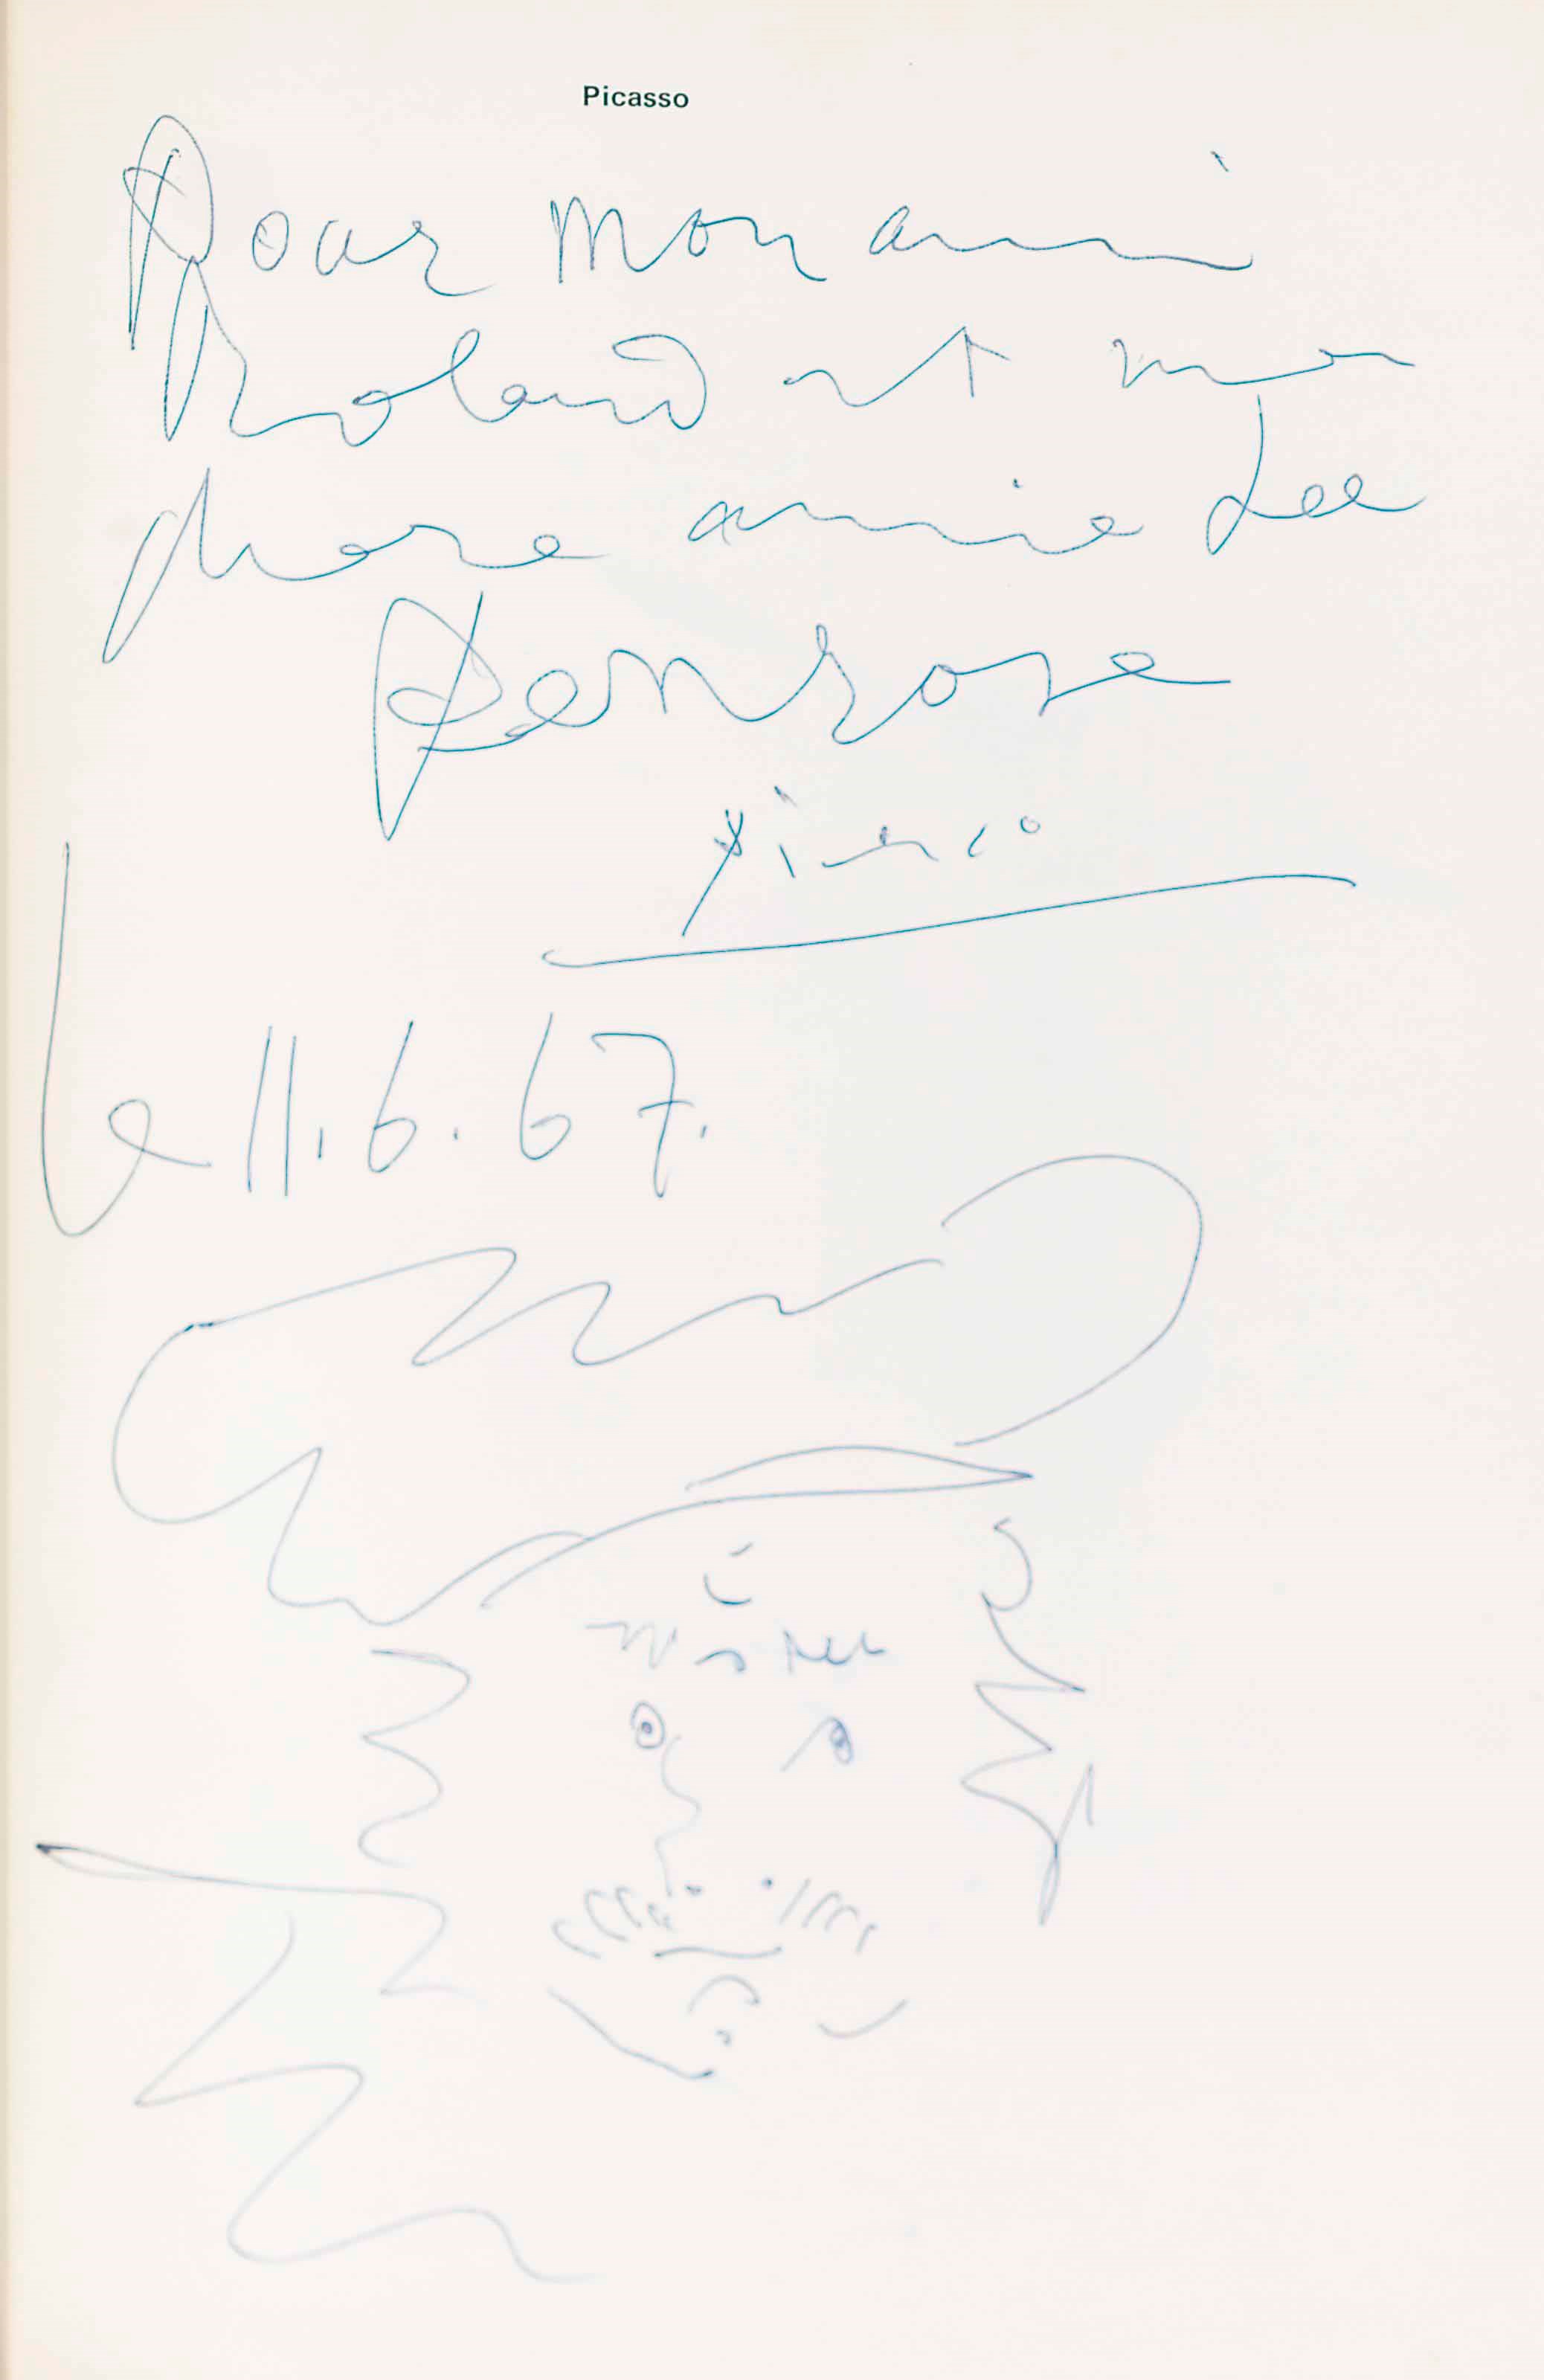 Picasso
Pour mon ami
Roland et mon
chere amie Lee
Penrose
Picasso
le 11.6.67.